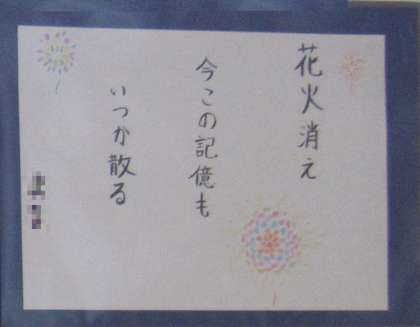 花火消え
今この記憶も
いつか散る